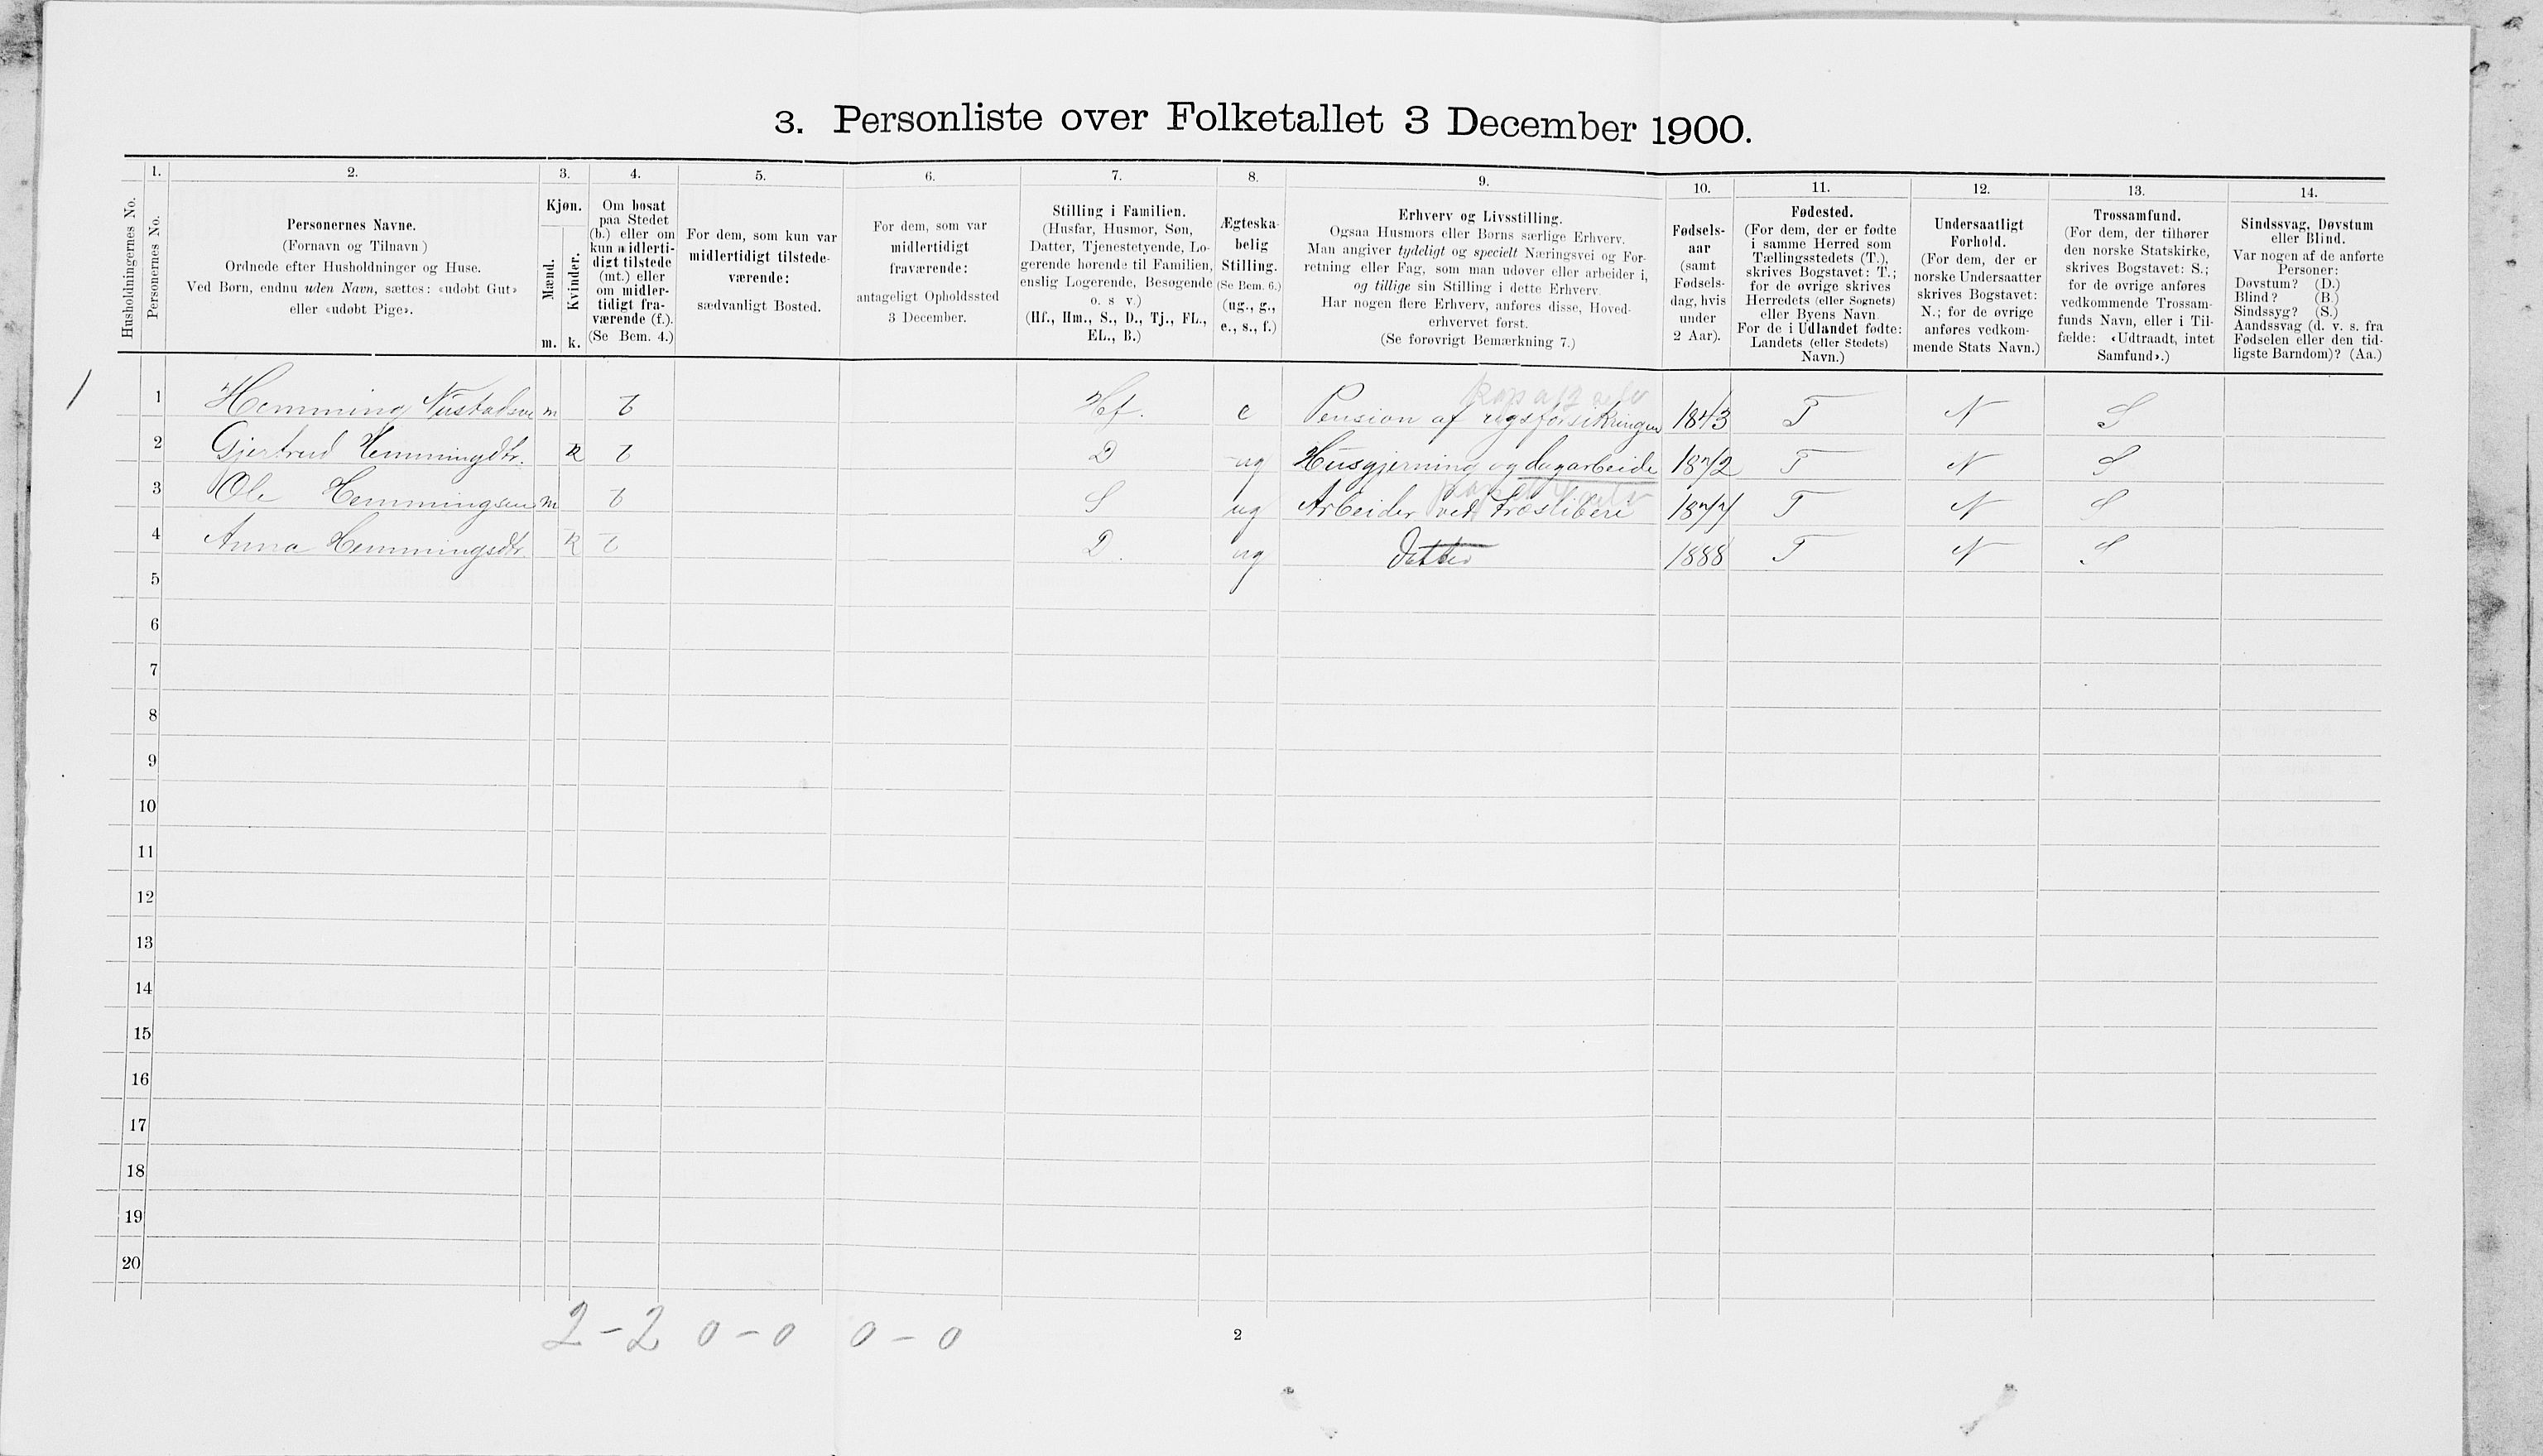 3. Personliste over Folketallet 3 December 1900.
Husholdningernes No.
1.
Personernes No.
2.
Personernes Navne.
(Fornavn og Tilnavn)
Ordnede efter Husholdninger og Huse.
Ved Børn, endnu uden Navn, sættes: «udøbt Gut»
eller «udøbt Pige».
3.
Kjøn.
Mænd.
Kvinder.
m. k.
4.
Om bosat
paa Stedet
(b.) eller om
kun midlerti-
digt tilstede
(mt.) eller
om midler-
tidigt fra-
værende (f.).
(Se Bem. 4.)
5.
For dem, som kun var
midlertidigt tilstede-
værende:
sædvanligt Bosted.
6.
For dem, som var
midlertidigt
fraværende:
antageligt Opholdssted
3 December.
7.
Stilling i Familien.
(Husfar, Husmor, Søn,
Datter, Tjenestetyende, Lo-
gerende hørende til Familien,
enslig Logerende, Besøgende
o. s v.)
(Hf., Hm., S., D., Tj., FL.,
EL., B.)
8.
Ægteska-
belig
Stilling.
(Se Bem. 6.)
(ug., g.,
e., s., f.)
9.
Erhverv og Livsstilling.
Ogsaa Husmors eller Børns særlige Erhverv.
Man angiver tydeligt og specielt Næringsvei og For-
retning eller Fag, som man udøver eller arbeider i,
og tillige sin Stilling i dette Erhverv.
Har nogen flere Erhverv, anføres disse, Hoved-
erhvervet først.
(Se forøvrigt Bemærkning 7.)
10.
Fødsels-
aar
(samt
Fødsels-
dag, hvis
under
2 Aar).
11.
Fødested.
(For dem, der er fødte
i samme Herred som
Tællingsstedets (T.),
skrives Bogstavet: T.;
for de øvrige skrives
Herredets (eller Sognets)
eller Byens Navn.
For de i Udlandet fødte:
Landets (eller Stedets)
Navn.)
12.
Undersaatligt
Forhold.
(For dem, der er
norske Undersaatter
skrives Bogstavet:
N.; for de øvrige
anføres vedkom-
mende Stats Navn.)
13.
Trossamfund.
(For dem, der tilhører
den norske Statskirke,
skrives Bogstavet: S.;
for de øvrige anføres
vedkommende Trossam-
funds Navn, eller i Til-
fælde: «Udtraadt, intet
Samfund».)
14.
Sindssvag, Døvstum
eller Blind.
Var nogen af de anførte
Personer:
Døvstum? (D.)
Blind? (B.)
Sindssyg? (S.)
Aandssvag (d. v. s. fra
Fødselen eller den tid-
ligste Barndom)? (Aa.)
1 Hemming m b Hf. e Pension af 1843 T N S
2 Gjertrud Hemmingsdtr. k b D ug Husgjerning og dagarbeide 1872 T N S
3 Ole Hemmingsen m b S ug Arbeider ved træsliberi 1877 T N S
4 Anna Hemmingsdtr. k b D. ug datter 1888 T N S
5
6
7
8
9
10
11
12
13
14
15
16
17
18
19
20
2 - 2 0 - 0 0 - 0
2